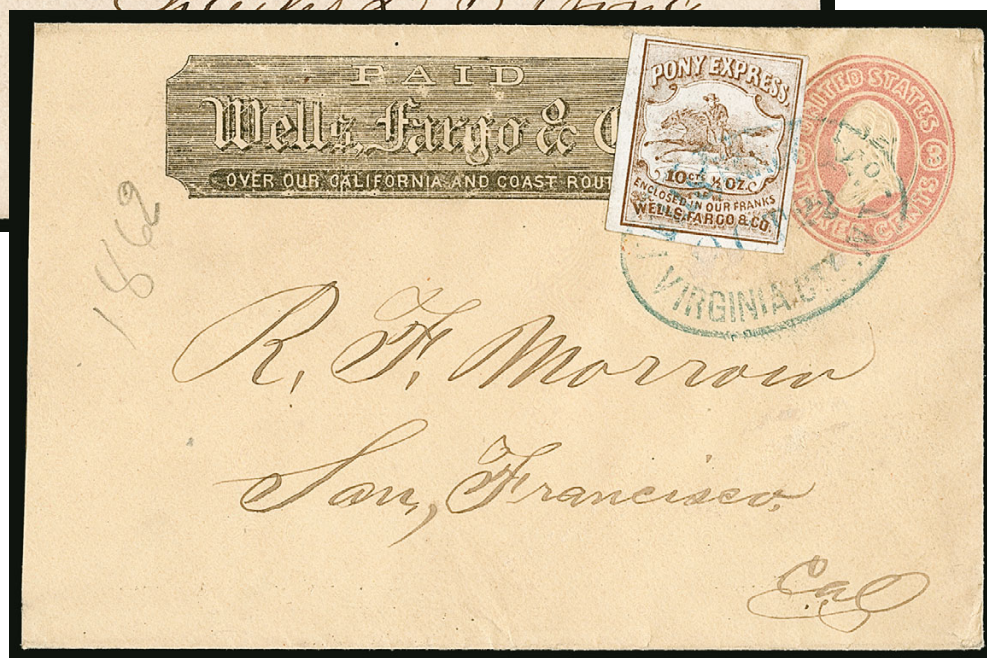 PAID
Wells, Fargo & C
OVER OUR CALIFORNIA AND COAST ROUT
PONY EXPRESS
10 CTS ½ OZ.
ENCLOSED IN OUR FRANKS
WELLS, FARGO & CO.
UNITED STATES
3 3
THREE CENTS
VIRGINIA
1862
R. F. Morrow
San, Francisco.
Cal